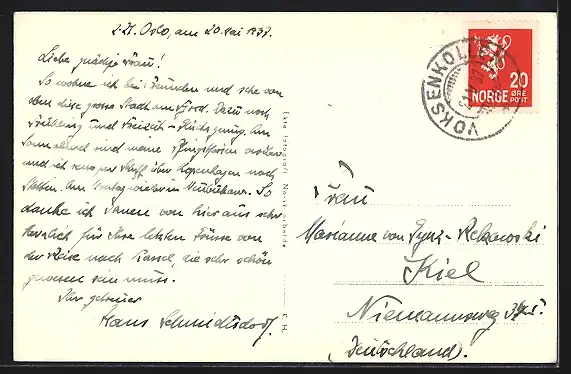 z. Zt. Oslo, am 20. Mai 1937.
Liebe gnädige Frau!
So wohne ich bei Freunden und sehe von
oben diese grosse Stadt am Fjord. Dazu noch
Frühling und Freizeit
Sonnabend sind meine Pfingstferien vorüber
und ich reise per Schiff über Kopenhagen nach
Stettin. Am Montag wieder in . So
danke ich Ihnen von hier aus sehr
herzlich für Ihre letzten Grüsse von
der Reise nach Kassel, die sehr schön
gewesen sein muss.
Ihr getreuer
Hans Schmidtsdorf.
Ekte fotografi Norsk arbeide
K. H.
VOKSENKOLLEN
20
NORGE ØRE
POST
Frau
Marianne von Dynz-Rekowski
Kiel
Niemannsweg
(Deutschland).